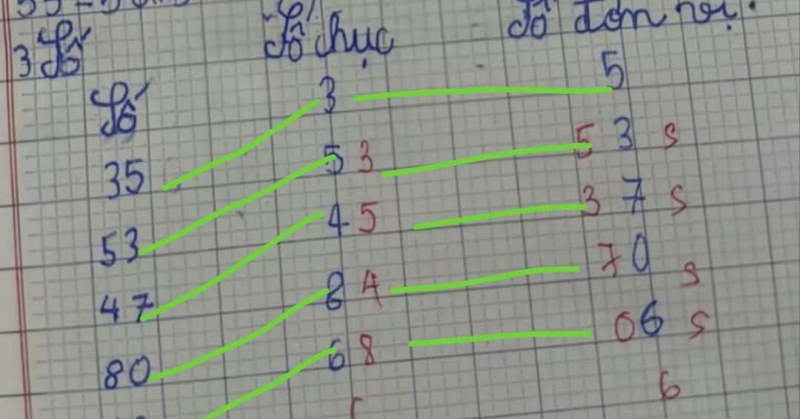 3 Số Số chục Số đơn vị.
Số 3 5
35 5 3 5 3 s
53 4 5 3 7 s
47 8 4 7 0 s
80 6 8 0 6 s
6